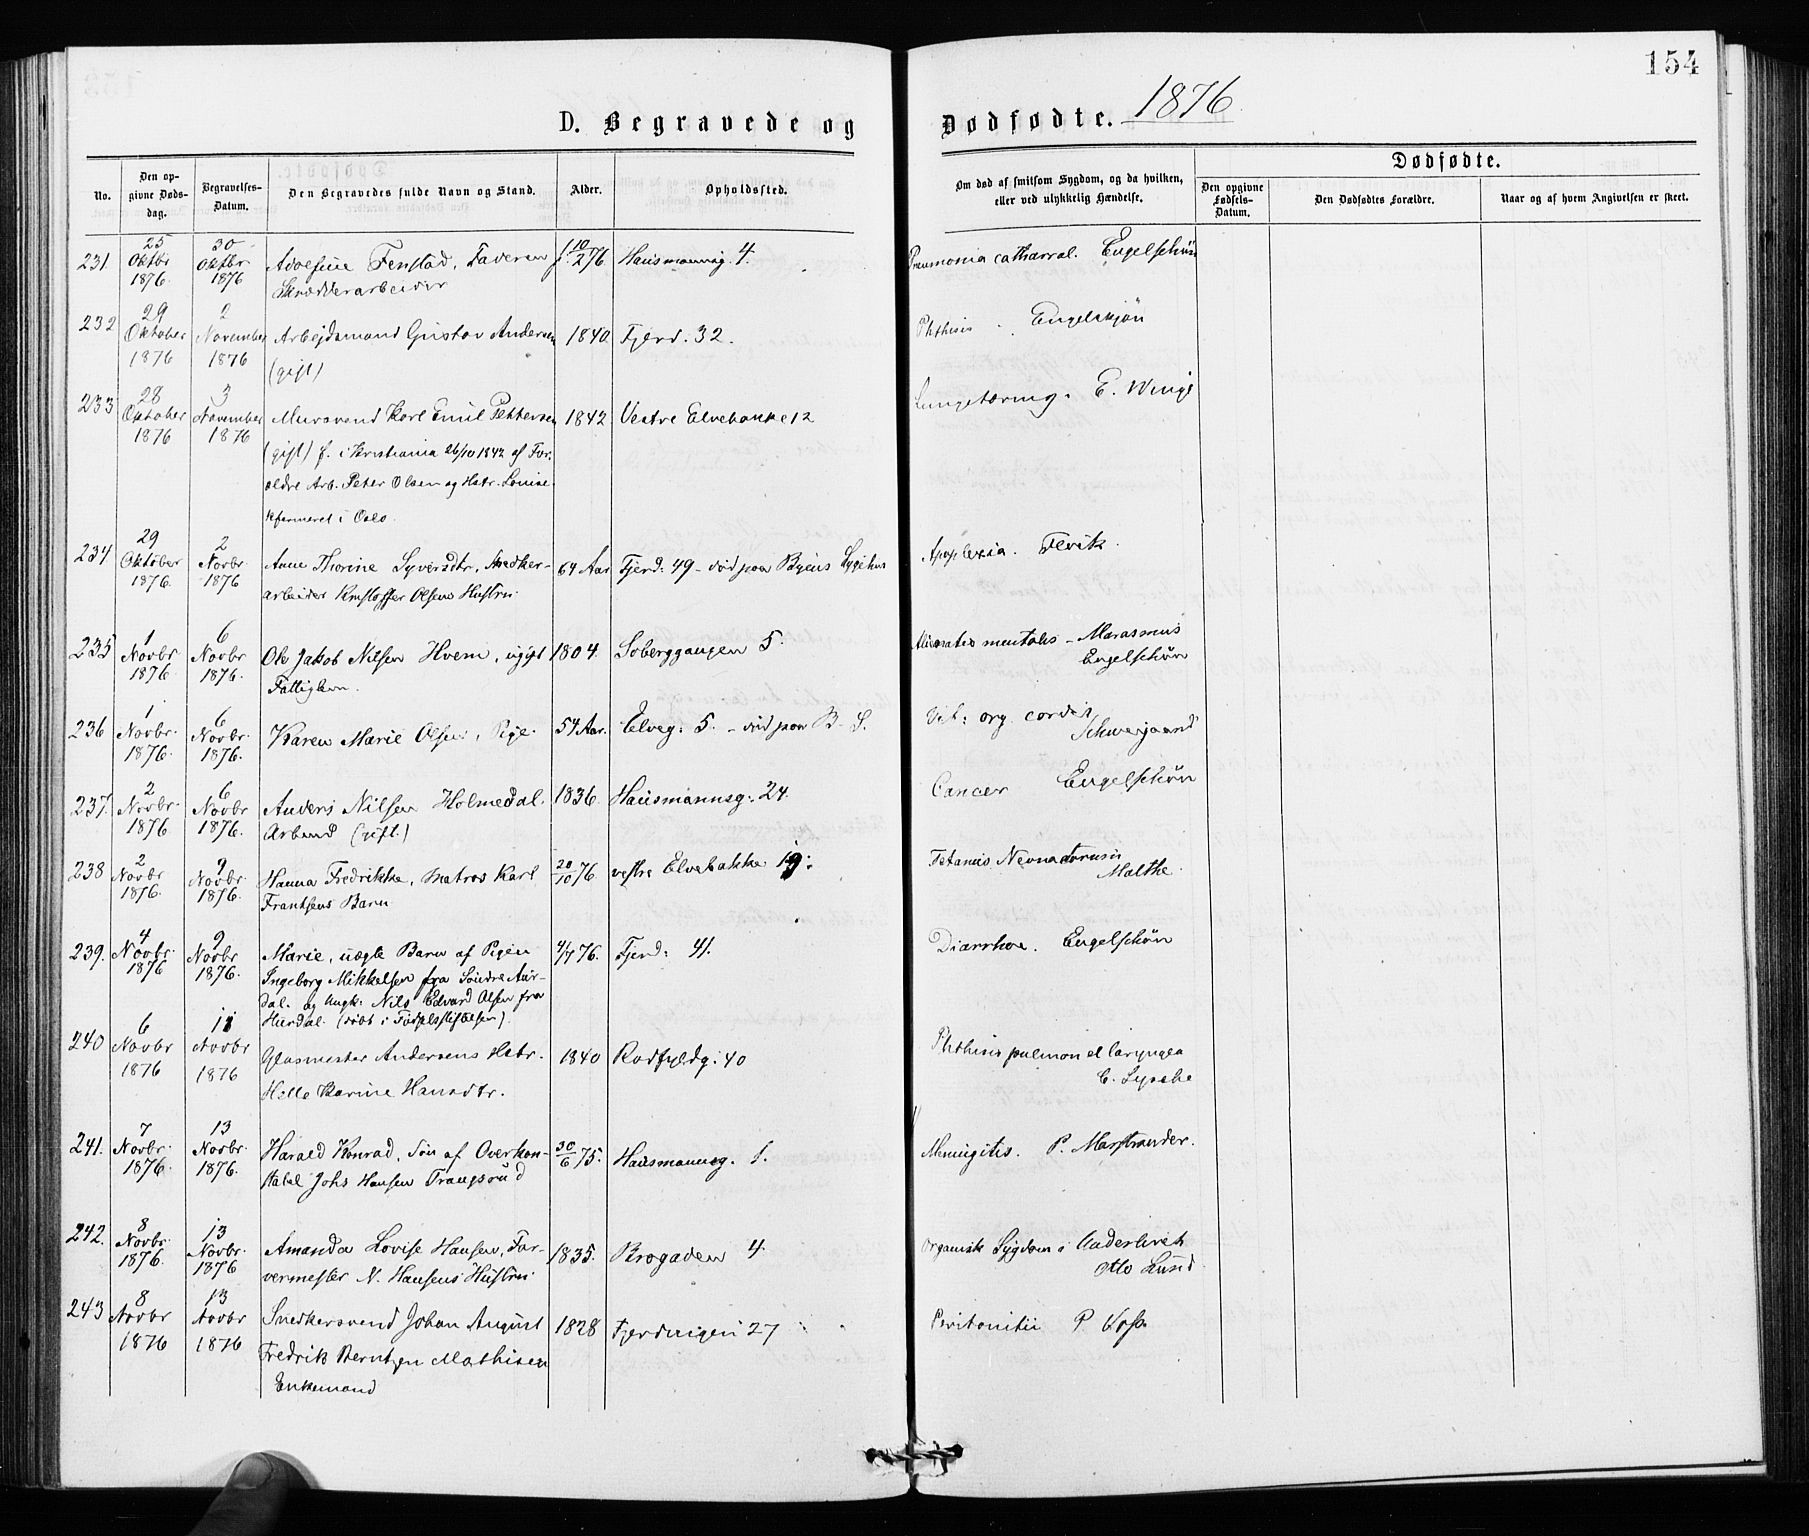 154
D. Begravede og Dødfødte. 1876
Dødfødte.
No.
Den opgivne Dødsdag.
Begravelses-Datum.
Den Begravedes fulde Navn og Stand.
Alder.
Opholdssted.
Om død af smitsom Sygdom, og da hvilken, eller ved ulykkelig Hændelse.
Den opgivne Fødsels-Datum.
Den Dødfødtes Forældre.
Naar og af hvem Angivelsen er skeet.
231. 25 Oktbr 1876. 30 Oktbr 1876 Adolfine Fenstad,
Skrædderarbeider
Hausmannsg. 4. Pneumonia catharral. Engelschiøn
232 29 Oktober 1876 2 November 1876 Arbejdsmand Gustav Andersen
(gift)
1840. Fjerd. 32. Phthisis. Engelskjøn
233 28 Oktober 1876 3 November 1876 Mursvend Karl Emil Pettersen
(gift) f. i Kristiania 26/10 1842 af For-
ældre Arb. Peter Olsen og Hstr. Lovise
kfirmeret i Oslo.
1842 Vestre Elvebakke 12 Lungetæring. E. Winge
234 29 Oktober 1876. 2 Novbr 1876 Anne Thorine Syversdtr, Snedker-
arbeider Kristoffer Olsens Hustru
64 Aar Fjerd: 49 - død paa Byens Sygehus Apoplexia.
235 1 Novbr 1876 6 Novbr 1876. Ole Jakob Nilsen Hvem, ugift
Fattiglem.
1804. Soberggangen 5. mentalis - Marasmus
Engelschøn
236 1 Novbr. 1876. 6 Novbr. 1876. Karen Marie Olsen, Pige.
54 Aar. Elveg: 5. - død paa B. S. Vit: org. cordis
237. 2 Novbr. 1876. 6 Novbr. 1876. Anders Nilsen Holmedal.
Arbmd (gift.)
1836. Hausmannsg: 24. Cancer Engelschøn
238 2 Novbr 1876. 9 Novbr 1876. Hanna Fredrikke, Matros Karl
Frantsens Barn
20/10 76 vestre Elvebakke 19: Tetanus Neonatorum
Malthe.
239. 4 Novbr. 1876 9 Novbr 1876. Marie, uægte Barn af Pigen
Ingeborg Mikkelsen fra Søndre Aur-
dal. og Ungk: Nils Edvard Olsen fra
Hurdal. (døbt i Fødselsstiftelsen).
4/7 76. Fjerd: 41. Diarrhoe. Engelschøn
240 6 Novbr 1876 11 Novbr 1876 Glasmester Andersens Hstr.
Helle Karine Hansdtr.
1840 Rodfyldg: 40 Phthisis pulmon et laryngea
241. 7 Novbr. 1876. 13 Novbr. 1876. Harald Konrad, Søn af Overkon-
stabel Johs Hansen Trangsrud
30/6 75. Hausmannsg. 1. Meningitis. P. Marstrander.
242. 8 Novbr. 1876. 13 Novbr. 1876 Amanda Lovise Hansen, Far-
vermester N. Hansens Hustru
1835. Brogaden 4. Organisk Sygdom i Underlivet
Otto Lund.
243 8 Novbr 1876 13 Novbr 1876 Snedkersvend Johan August
Fredrik Berntzen Mathisen
Enkemand
1828 Fjerdingen 27 Peritonitis P